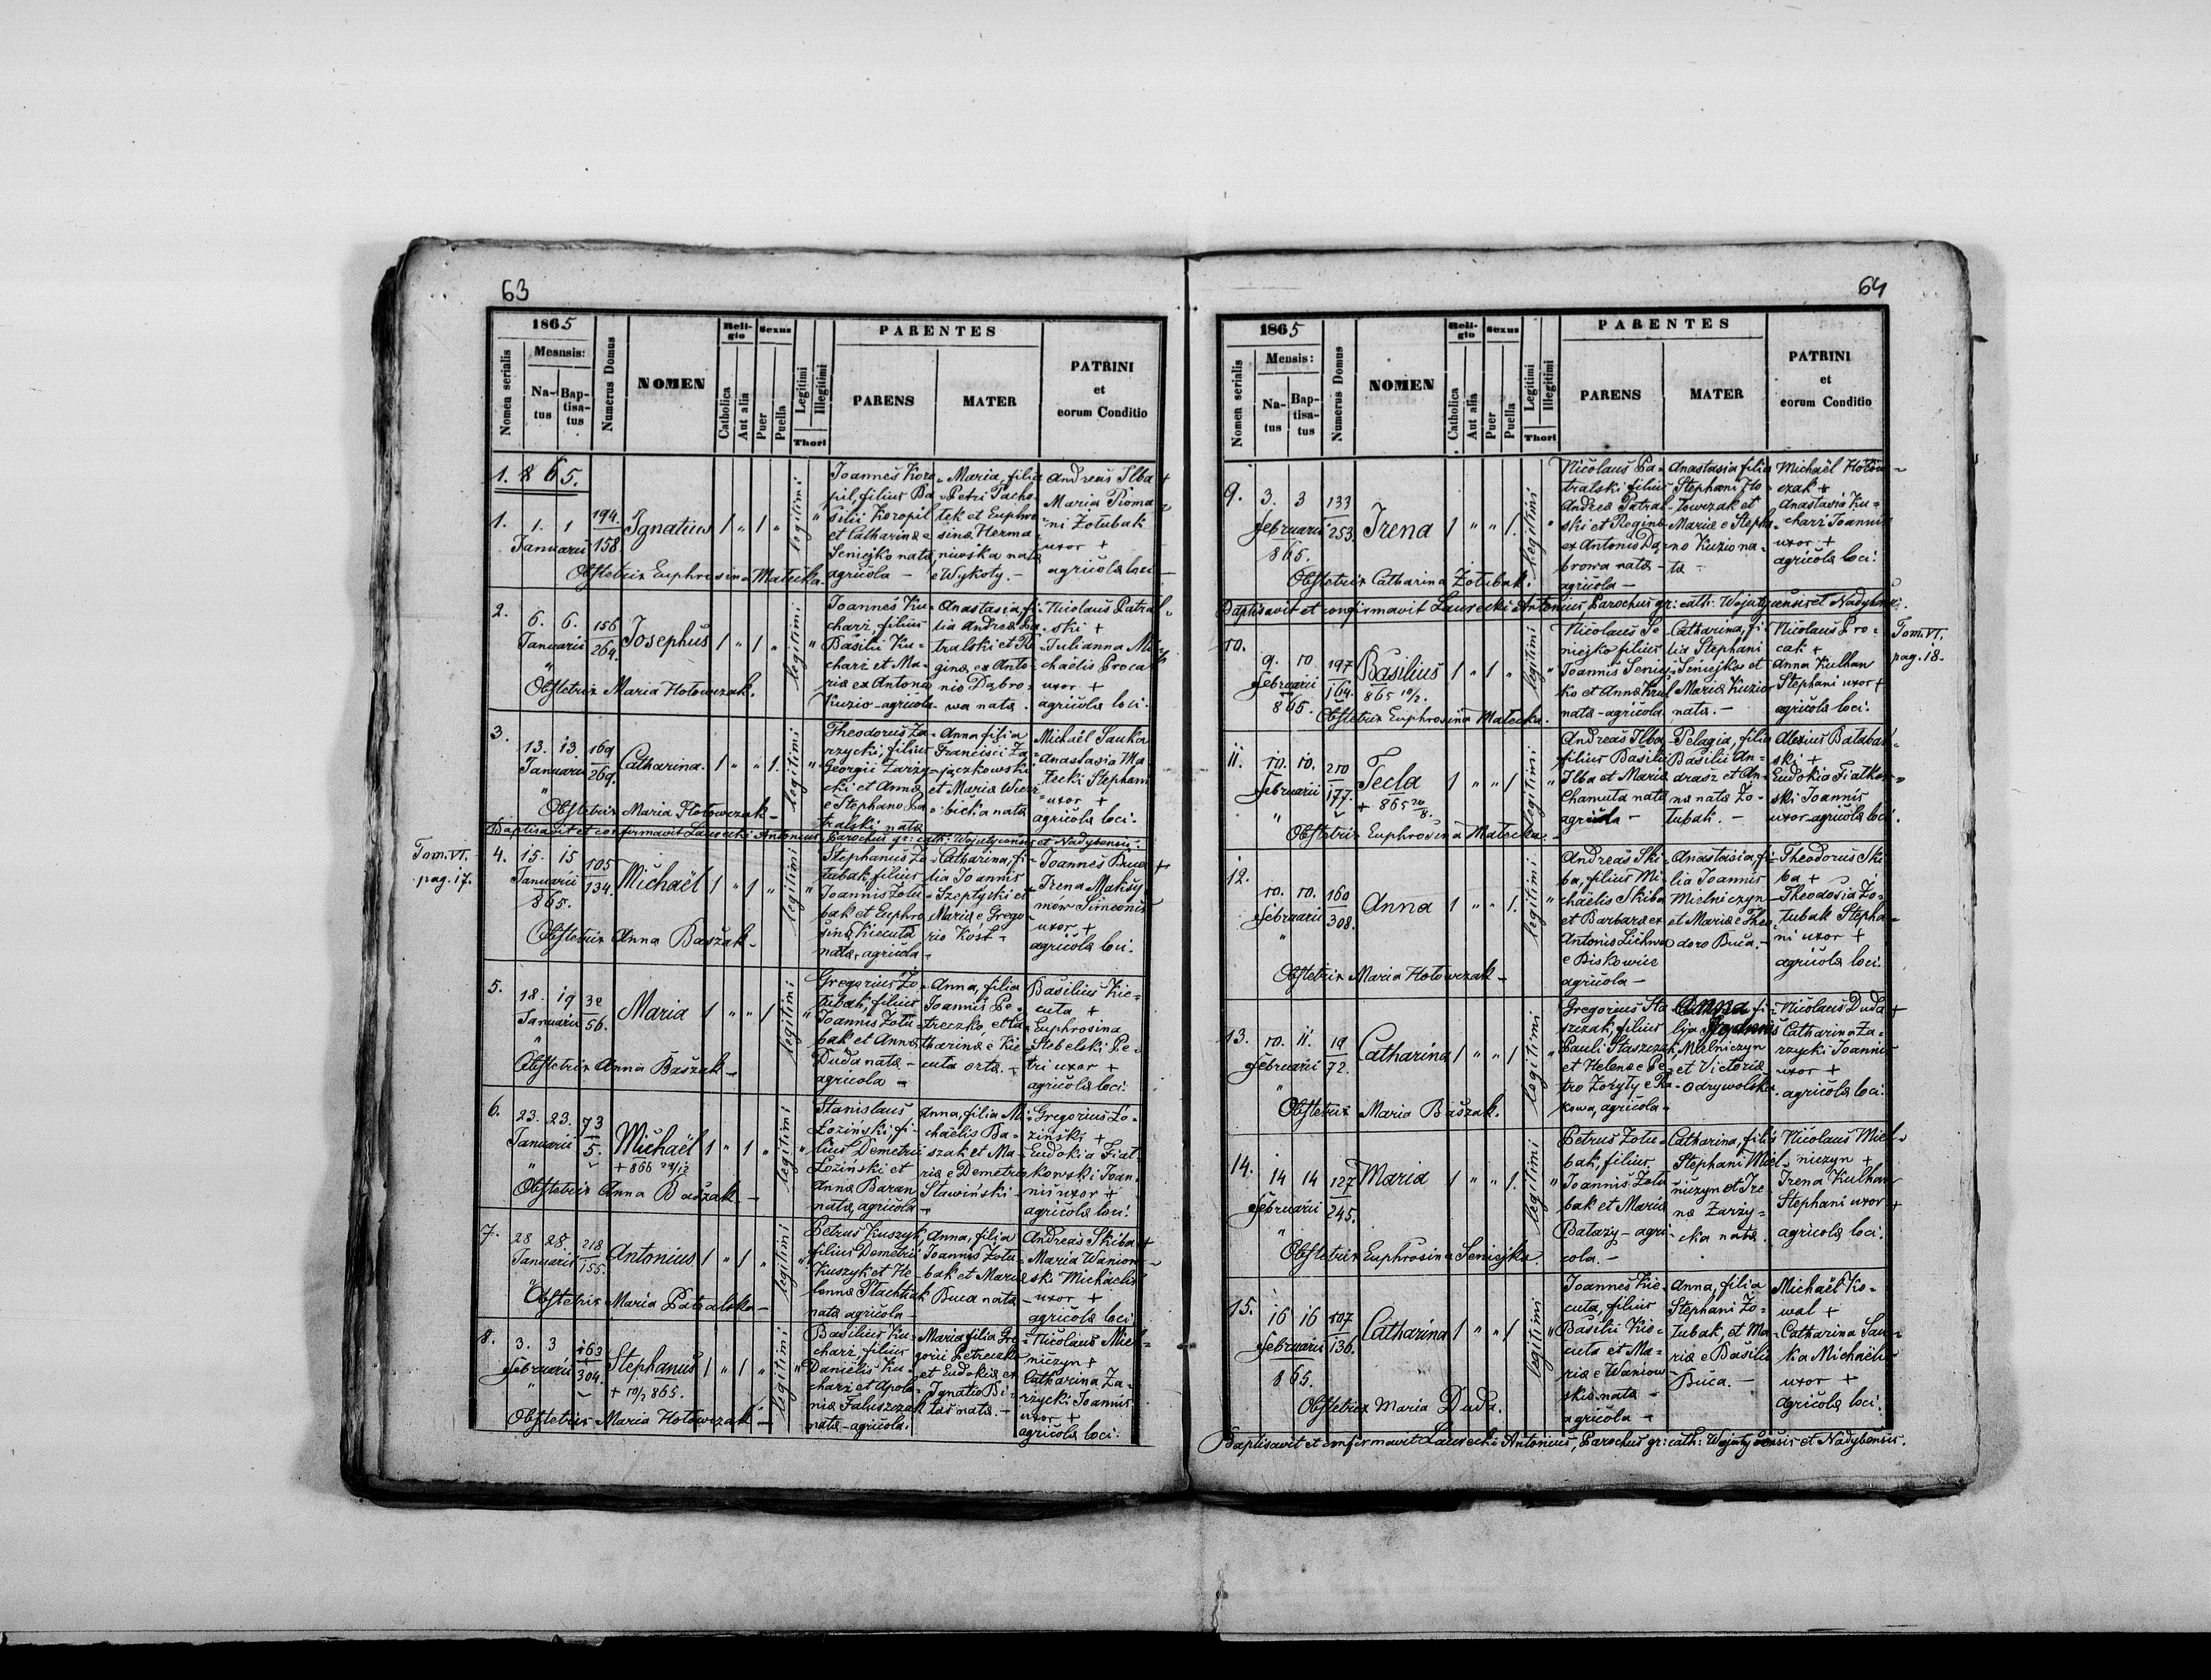 63
1865
Mesnsis:
Nomen serialis
Na-
tus
Bap-
tisa-
tus
Numerus Domus
NOMEN
Reli-
gio
Catholica
Aut alia
Sexus
Puer
Puella
Legitimi
Illegitimi
Thori
PARENTES
PARENS
MATER
PATRINI
et
eorum Conditio
1. 8 6 5.
1. 1. 1
Januarii
194
158
Ignatius 1 " 1 "
legitimi
Joannes Koro-
pil, filius Ba-
silii Koropil
et Catharinæ e
Seniejko nata
agricola —
Maria, filia
Petri Pacho-
tek et Euphro-
sinæ Herma-
niuska nata
e Wykoty. —
Andreas Ilba +
Maria Roma-
ni Zołubak
uxor +
agricolæ loci
Obstetrix Euphrosina Matecka.
2. 6. 6.
Januarii
"
156
264.
Josephus 1 " 1 "
legitimi
Joannes Ku-
charz, filius
Basilii Ku-
charz et Ma-
riæ ex Antono
Kuzio - agricola
Anastasia, fi-
lia Andreæ Pa-
tralski et Re-
ginæ ex Anto-
nio Dąbro-
wa nata.
Nicolaus Patral-
ski +
Julianna Mi-
chaelis Procak
uxor +
agricolæ loci.
Obstetrix Maria Hołowczak.
3. 13. 13
Januarii
"
169
269.
Catharina. 1 " " 1.
legitimi
Theodorus Za-
rzycki, filius
Georgii Zarzy-
cki et Annæ
e Stephano Pa-
tralski nata
Anna filia
Francisci Za-
jączkowski
et Mariæ Wierz-
bicka nata
Michaël Sauka
Anastasia Ma-
tecki Stephani
uxor +
agricolæ loci.
Obstetrix Maria Hołowczak —
Baptisavit et confirmavit Laurecki Antonius Parochus gr: cath: Wojutycensis et Nadybensis.
Tom. VI.
pag. 17.
4. 15. 15
Januarii
865.
105
134.
Michaël 1 " 1 "
legitimi
Stephanus Zo-
łubak, filius
Joannis Zołu-
bak et Euphro-
sinæ Kiecuta
nata, agricola
Catharina, fi-
lia Joannis
Szeptycki et
Mariæ e Grego-
rio Kost —
Joannes Buca +
Irena Maksy-
mow Simeonis
uxor +
agricolæ loci.
Obstetrix Anna Baszak —
5. 18. 19
Januarii
"
32
56.
Maria 1 " " 1
legitimi
Gregorius Zo-
łubak, filius
Joannis Zołu-
bak et Annæ
Duda nata —
agricola —
Anna, filia
Joannis Pe-
treczko, et Ca-
tharinæ e Kie-
cuta orta. —
Basilius Kie-
cuta +
Euphrosina
Stebelski Pe-
tri uxor +
agricolæ loci.
Obstetrix Anna Baszak —
6. 23. 23.
Januarii
"
73
5.
Michaël 1 " 1 "
+ 866 29/12
legitimi
Stanislaus
Łoziński, fi-
lius Demetrii
Łoziński et
Annæ Baran
nata, agricola
Anna, filia Mi-
chaelis Ba-
szak et Ma-
riæ e Demetrio
Sławiński —
Gregorius Ło-
ziński +
Eudokia Fiat-
kowski Joan-
nis uxor +
agricolæ loci.
Obstetrix Anna Baszak —
7. 28 28
Januarii
"
218
155.
Antonius 1 " 1 "
legitimi
Petrus Kuszyk,
filius Demetrii
Kuszyk et He-
lennæ Płachtiak
nata agricola —
Anna, filia
Joannis Zołu-
bak et Mariæ
Buca nata —
Andreas Skiba +
Maria Waniow-
ski Michaelis
uxor +
agricolæ loci.
Obstetrix Maria Patralska —
8. 3. 3
Februarii
"
163
304.
Stephanus 1 " 1 "
+ 10/7 865.
legitimi
Basilius Ku-
charz, filius
Daniëlis Ku-
charz et Apolo-
niæ Faluszczak
nata — agricola.
Maria filia Gre-
gorii Petreczko
et Eudokiæ ex
Ignatio Bi-
las nata. —
Nicolaus Miel-
niczyn +
Catharina Za-
rzycki Joannis
uxor +
agricolæ loci.
Obstetrix Maria Hołowczak —
64
1865
Mensis:
Nomen serialis
Na-
tus
Bap-
tisa-
tus
Numerus Domus
NOMEN
Reli-
gio
Catholica
Aut alia
Sexus
Puer
Puella
Legitimi
Illegitimi
Thori
PARENTES
PARENS
MATER
PATRINI
et
eorum Conditio
9. 3. 3
Februarii
865.
133
253.
Irena 1 " " 1.
legitimi
Nicolaus Pa-
tralski filius
Andreæ Patral-
ski et Reginæ
ex Antonio Dą-
browa nata —
agricola —
Anastasia filia
Stephani Ho-
łowczak et
Mariæ e Stepha-
no Kuzio na-
ta —
Michaël Hołow-
czak +
Anastasia Ku-
charz Joannis
uxor +
agricolæ loci.
Obstetrix Catharina Zołubak.
Baptisavit et confirmavit Laurecki Antonius, Parochus gr: cath: Wojutycensis et Nadybensis.
10. 9. 10
Februarii
865.
197
164.
Basilius 1 " 1 "
865 10/2.
legitimi
Nicolaus Se-
niejko filius
Joannis Seniej-
ko et Annæ Krul
nata — agricola
Catharina, fi-
lia Stephani
Seniejko et
Mariæ Kuzio
nata. —
Nicolaus Pro-
cak +
Anna Kulhan
Stephani uxor +
agricolæ loci.
Tom. VI.
pag. 18.
Obstetrix Euphrosina Matecka.
11. 10. 10.
Februarii
"
210
177.
Tecla 1 " " 1
+ 865 20/8.
legitimi
Andreas Ilba
filius Basilii
Ilba et Mariæ
Chamuta nata
agricola —
Pelagia, filia
Basilii An-
drasz et An-
næ nata Zo-
łubak. —
Alexius Bałaban-
ski +
Eudokia Fiatkow-
ski Joannis
uxor agricolæ loci.
Obstetrix Euphrosina Matecka.
12. 10. 10.
Februarii
"
160
308.
Anna 1 " " 1.
legitimi
Andreas Ski-
ba, filius Mi-
chaëlis Skiba
et Barbaræ ex
Antonio Lichwa
e Biskowice
agricola —
Anastasia, fi-
lia Joannis
Mielniczyn
et Mariæ e Theo-
doro Buca. —
Theodorus Ski-
ba +
Theodosia Zo-
łubak Stepha-
ni uxor +
agricolæ loci.
Obstetrix Maria Hołowczak —
13. 10. 11.
Februarii
"
19
72.
Catharina 1 " " 1
legitimi
Gregorius Sta-
szczak, filius
Pauli Staszczak
et Helenæ e Pe-
tro Zoryły e Ra-
kowa, agricola —
Anna fi-
lia Joannis
Mielniczyn
et Victoriæ
Odrywolska.
Nicolaus Duda +
Catharina Za-
rzycki Joannis
uxor +
agricolæ loci.
Obstetrix Maria Baszak.
14. 14 14
Februarii
"
127
245.
Maria 1 " " 1.
legitimi
Petrus Zołu-
bak, filius
Joannis Zołu-
bak et Mariæ
Batazy — agri-
cola. —
Catharina, filia
Stephani Miel-
niczyn et Ire-
næ Zarzy-
cka nata.
Nicolaus Miel-
niczyn +
Irena Kulhan
Stephani uxor +
agricolæ loci.
Obstetrix Euphrosina Seniejko.
15. 16 16
Februarii
865.
107
136.
Catharina 1 " " 1
legitimi
Joannes Kie-
cuta, filius
Basilii Kie-
cuta et Ma-
riæ e Waniow-
skie nata —
agricola —
Anna, filia
Stephani Zo-
łubak, et Ma-
riæ e Basilio
Buca. —
Michaël Ko-
wal +
Catharina Sau-
ka Michaëlis
uxor +
agricolæ loci.
Obstetrix Maria Duda.
Baptisavit et confirmavit Laurecki Antonius, Parochus gr: cath: Wojutycensis et Nadybensis.